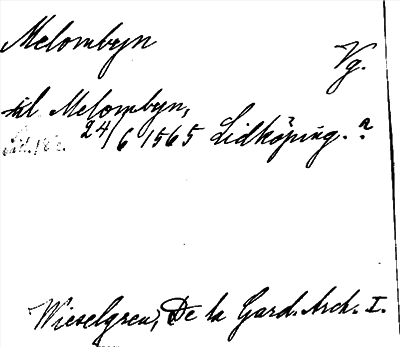 Melombyn
Vg.
till Melombyn,
24/6 1565 Lidköping.
Wieselgren, De la Gard. Arch. I.